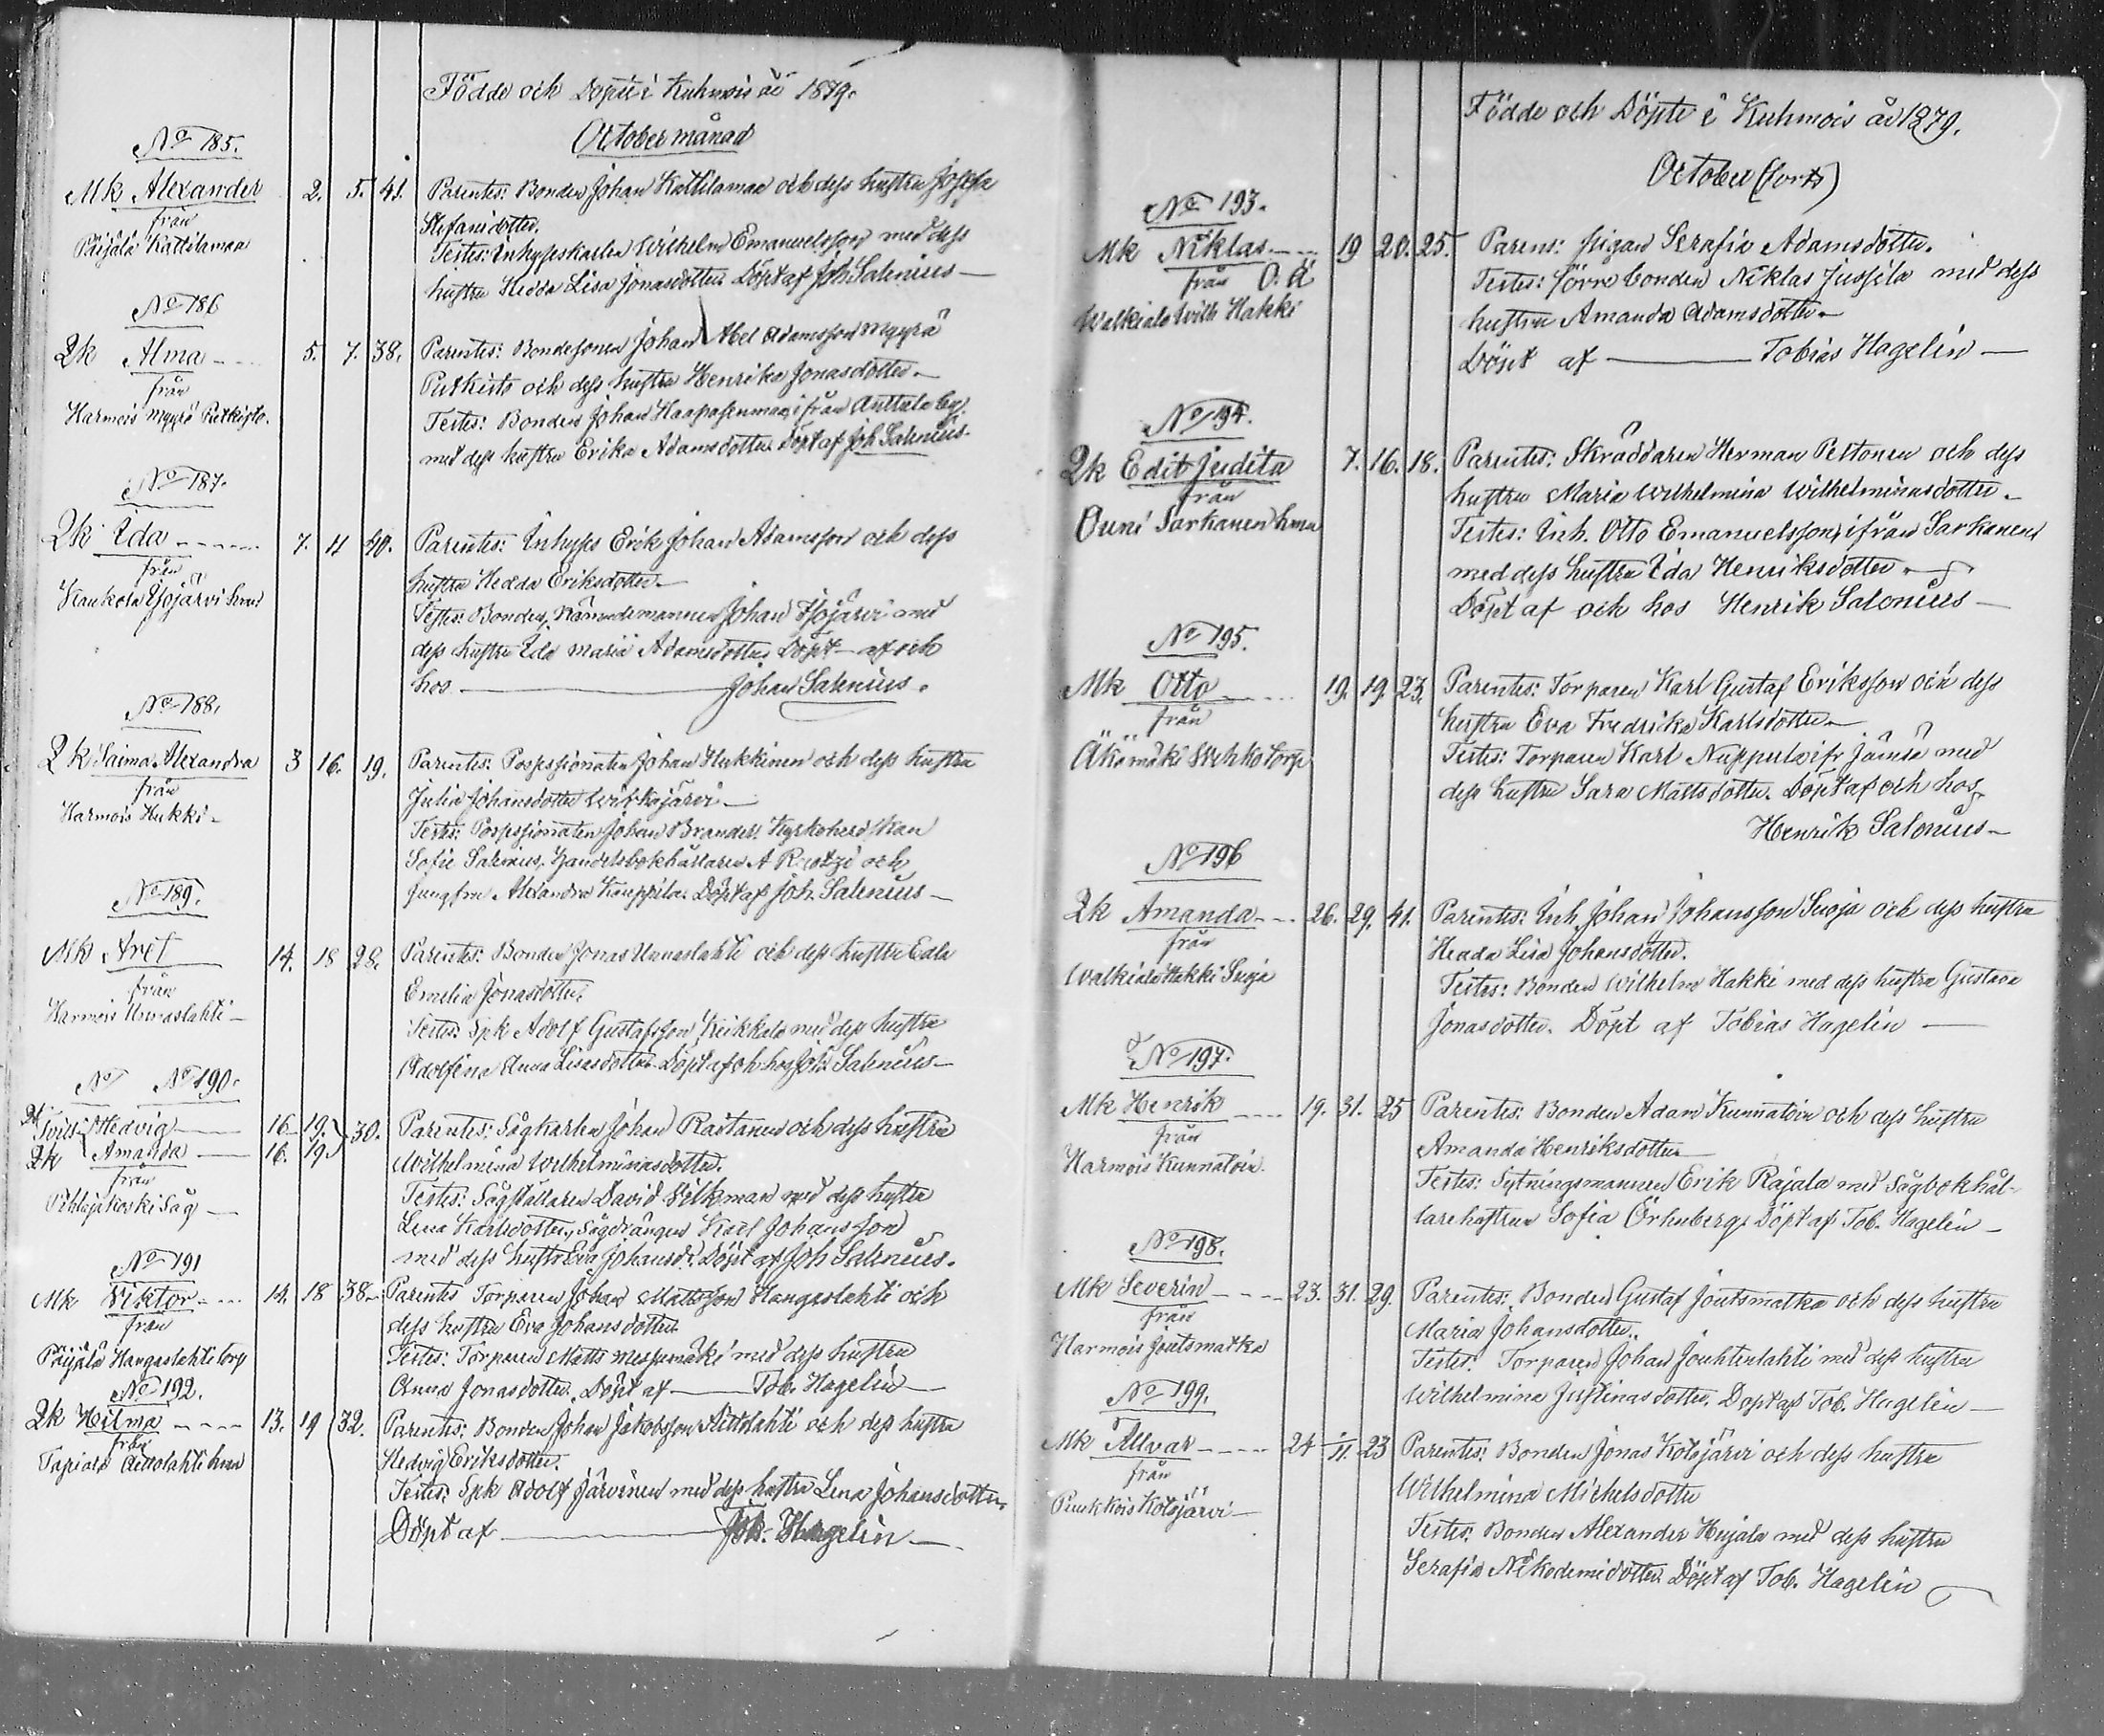 Födde och Döpte i Kuhmois år 1879.
October månad
No 185.
Mk Alexander 2. 5. 41. Parentes: Bonden Johan Kattilamaa och dess hustru Josefa
från
Päijälä Kattilamaa
Stefanidotter.
Testes: Inhyseskarlen Wilhelm Emanuelsson med dess
hustru Hedda Lisa Jonasdotter Döpt af Joh. Salenius
No 186
Qk Alma 5. 7. 38. Parentes: Bondesonen Johan Abel Adamsson Myyrä
från
Putkisto och dess hustru Henrika Jonasdotter.
Harmois Myyrä Putkisto.
Testes: Bonden Johan ifrån Anttula by
med dess hustru Erika Adamsdotter Döpt af Joh Salenius.
No 187.
Qk Ida 7. 11 40. Parentes: Inhyses Erik Johan Adamsson och dess
från
hustru Hedda Eriksdotter.
Kaukola Isojärvi hmn
Testes: Bonden, Nämndemannen Johan Isojärvi med
dess hustru Ida Maria Adamsdotter Döpt af och
hos Johan Salenius.
No 188.
Qk Saima Alexandra 3 16. 19. Parentes: Possessionaten Johan Hukkinen och dess hustru
från
Julia Johansdotter
Harmois Hukki
Testes: Possessionaten Johan Brander. Kyrkoherdskan
Sofie Salenius, Handelsbokhållaren A och
Jungfru Alexandra Kauppila. Döpt af Joh. Salenius
No 189.
Mk Axel 14. 18 28. Parentes: Bonden Jonas Unnaslahti och dess hustru Edla
från
Emelia Jonasdotter.
Harmois Unnaslahti
Testes: Spk Adolf Gustafsson Heikkala med dess hustru
Adolfina Anna Lisasdotter Döpt af och hos Joh. Salenius
No No 190.
Qk Hedvig 16 19. 30. Parentes: Sågkarlen Johan Raitanen och dess hustru
Tvill
Qk Amanda 16. 19
från
Wilhelmina Wilhelminasdotter.
Testes: Sågställaren David Vilkman med dess hustru
Lena Karlsdotter, Sågdrängen Karl Johansson
med dess hustru Eva Johansdr. Döpt af Joh Salenius.
No 191
Mk Viktor 14. 18 38 Parentes Torparen Johan Mattsson Hangaslahti och
från
dess hustru Eva Johansdotter
Päijälä Hangaslahti torp
Testes: Torparen Matts Messumäki med dess hustru
Anna Jonasdotter. Döpt af Tob. Hagelin
No 192.
Qk Hilma 13. 19 32. Parentes: Bonden Johan Jakobsson Aittolahti och dess hustru
från
Hedvig Eriksdotter.
Tapiala Aittolahti hmn
Testes: Spk Adolf Järvinen med dess hustru Lena Johansdotter.
Döpt af Hagelin
Födde och Döpte i Kuhmois år 1879.
October (forts)
No 193.
Mk Niklas 19 20. 25. Parens: Pigan Serafia Adamsdotter.
från O. Ä
Walkiala Wilh Hakki
Testes: förre bonden Niklas Jussila med dess
hustru Amanda Adamsdotter
Döpt af Tobias Hagelin
No 194.
Qk Edit Judita 7. 16. 18. Parentes: Skräddaren Herman Peltonen och dess
från
hustru Maria Wilhelmina Wilhelminasdotter.
Ouni Sarkanen hmn
Testes: Inh. Otto Emanuelsson, ifrån Sarkanen
med dess hustru Ida Henriksdotter
Döpt af och hos Henrik Salonius
No 195.
Mk Otto 19. 19. 23. Parentes: Torparen Karl Gustaf Eriksson och dess
från
hustru Eva Fredrika Karlsdotter
Äkämäki torp
Testes: Torparen Karl ifr Jämsä med
dess hustru Sara Mattsdotter. Döpt af och hos
Henrik Salonius
No 196
Qk Amanda 26. 29. 41. Parentes: Inh. Johan Johansson Suoja och dess hustru
från
Hedda Lisa Johansdotter.
Walkiala Hakki Suoja
Testes: Bonden Wilhelm Hakki med dess hustru Gustava
Jonasdotter. Döpt af Tobias Hagelin
No 197.
Mk Henrik 19. 31. 25 Parentes: Bonden Adam Kunnatoin och dess hustru
från
Amanda Henriksdotter
Harmois Kunnatoin
Testes: Sytningsmannen Erik Rajala med Sågbokhål-
larehustrun Sofia Örhnberg. Döpt af Tob. Hagelin
No 198.
Mk Severin 23. 31. 29. Parentes: Bonden Gustaf Joutsmatka och dess hustru
från
Maria Johansdotter.
Harmois Joutsmatka
Testes: Torparen Johan Jouhtenlahti med dess hustru
Wilhelmina Justinasdotter. Döpt af Tob. Hagelin
No 199.
Mk Allvar 24 1/11. 23 Parentes: Bonden Jonas Kotojärvi och dess hustru
från
Wilhelmina Michelsdotter
Puukkois Kotojärvi
Testes: Bonden Alexander Heijala med dess hustru
Serafia Nikodemidotter. Döpt af Tob. Hagelin